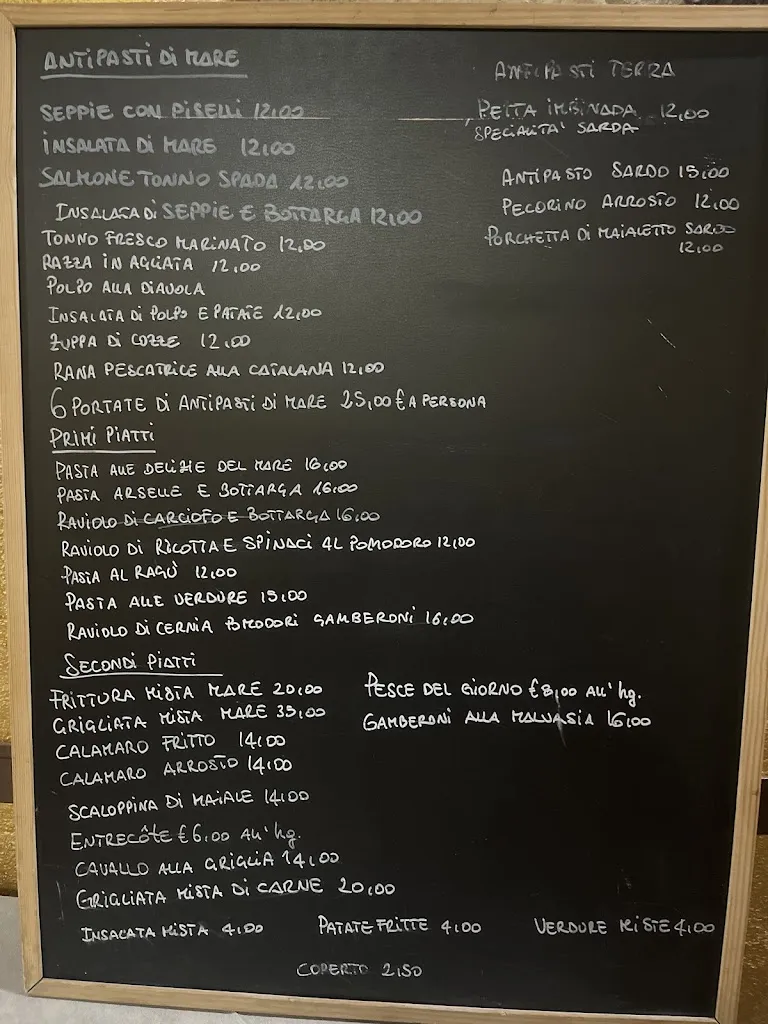 ANTIPASTI DI MARE
SEPPIE CON PISELLI 12,00
INSALATA DI MARE 12,00
SALMONE TONNO SPADA 12,00
INSALATA DI SEPPIE E BOTTARGA 12,00
TONNO FRESCO MARINATO 12,00
RAZZA IN AGLIATA 12,00
POLPO ALLA DIAVOLA
INSALATA DI POLPO E PATATE 12,00
ZUPPA DI COZZE 12,00
RANA PESCATRICE ALLA CATALANA 12,00
6 PORTATE DI ANTIPASTI DI MARE 25,00 € A PERSONA
ANTIPASTI TERRA
12,00
SPECIALITA' SARDA
ANTIPASTO SARDO 15,00
PECORINO ARROSTO 12,00
PORCHETTA DI MAIALETTO SARDO
12,00
PRIMI PIATTI
PASTA ALLE DELIZIE DEL MARE 16,00
PASTA ARSELLE E BOTTARGA 16,00
RAVIOLO DI CARCIOFO E BOTTARGA 16,00
RAVIOLO DI RICOTTA E SPINACI AL POMODORO 12,00
PASTA AL RAGÙ 12,00
PASTA ALLE VERDURE 15,00
RAVIOLO DI CERNIA POMODORI GAMBERONI 16,00
SECONDI PIATTI
FRITTURA MISTA MARE 20,00
GRIGLIATA MISTA MARE 35,00
CALAMARO FRITTO 14,00
CALAMARO ARROSTO 14,00
SCALOPPINA DI MAIALE 14,00
ENTRECÔTE € 6,00 ALL' hg.
CAVALLO ALLA GRIGLIA 14,00
GRIGLIATA MISTA DI CARNE 20,00
PESCE DEL GIORNO € 8,00 ALL' hg.
GAMBERONI ALLA MALVASIA 16,00
INSALATA MISTA 4,00 PATATE FRITTE 4,00 VERDURE MISTE 4,00
COPERTO 2,50